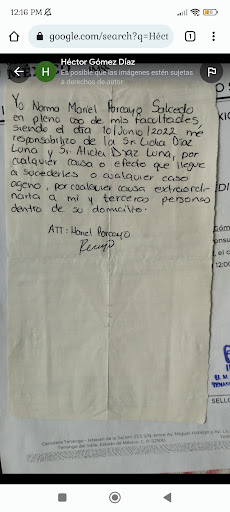 12:16 PM
google.com/search?q=Héct
1
Héctor Gómez Díaz
Es posible que las imágenes estén sujetas
a derechos de autor
Yo Norma Mariel Porcayo Salcedo
en pleno uso de mis facultades,
siendo el día 10/Junio/2022 me
responsabilizo de la Sr. Lidia Díaz
Luna y Sr. Alicia Díaz Luna, por
cualquier causa o efecto que llegue
a sucederles o cualquier caso
ageno, por cualquier causa extraordi-
naria a mi y terceras personas
dentro de su domicilio.
ATT: Mariel Porcayo
12:00
SELLO
Carretera Tenango - Ixtapan de la Sal km. S/N, entre Av. Miguel Hidalgo y
Tenango del Valle, Estado de México. C. P.